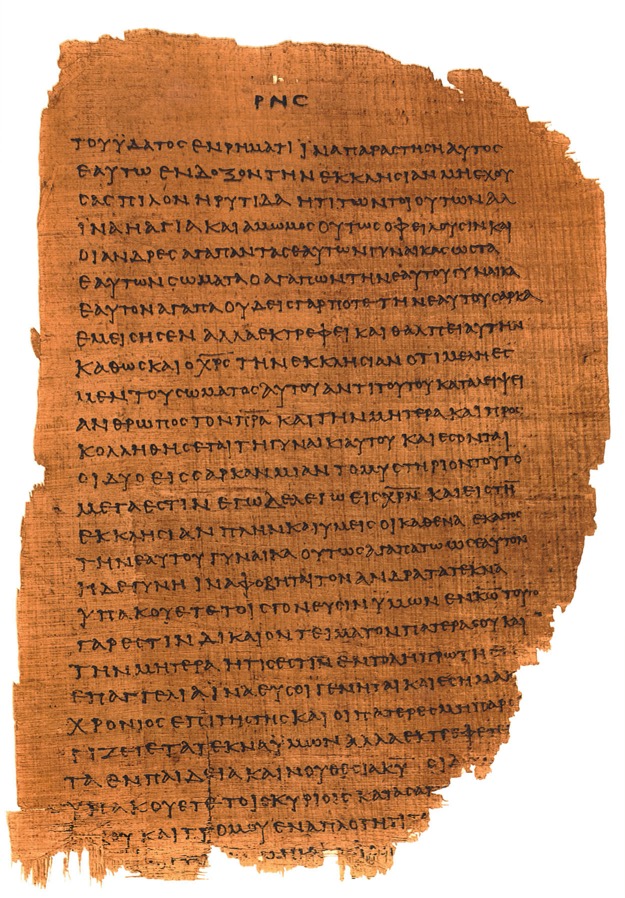 ΡΝϚ
ΤΟΥ ΫΔΑΤΟϹ ΕΝ ΡΗΜΑΤΙ ΪΝΑ ΠΑΡΑϹΤΗϹΗ ΑΥΤΟϹ
ΕΑΥΤΩ ΕΝΔΟΞΟΝ ΤΗΝ ΕΚΚΛΗϹΙΑΝ ΜΗ ΕΧΟΥ
ϹΑϹ ΠΙΛΟΝ Η ΡΥΤΙΔΑ Η ΤΙ ΤΩΝ ΤΟΙΟΥΤΩΝ ΑΛ
ΪΝΑ Η ΑΓΙΑ ΚΑΙ ΑΜΩΜΟϹ ΟΥΤΩϹ ΟΦΕΙΛΟΥϹΙΝ ΚΑΙ
ΟΙ ΑΝΔΡΕϹ ΑΓΑΠΑΝ ΤΑϹ ΕΑΥΤΩΝ ΓΥΝΑΙΚΑϹ ΩϹ ΤΑ
ΕΑΥΤΩΝ ϹΩΜΑΤΑ Ο ΑΓΑΠΩΝ ΤΗΝ ΕΑΥΤΟΥ ΓΥΝΑΙΚΑ
ΕΑΥΤΟΝ ΑΓΑΠΑ ΟΥΔΕΙϹ ΓΑΡ ΠΟΤΕ ΤΗΝ ΕΑΥΤΟΥ ϹΑΡΚΑ
ΕΜΕΙϹΗϹΕΝ ΑΛΛΑ ΕΚΤΡΕΦΕΙ ΚΑΙ ΘΑΛΠΕΙ ΑΥΤΗΝ
ΚΑΘΩϹ ΚΑΙ Ο Χ̅Ρ̅Ϲ̅ ΤΗΝ ΕΚΚΛΗϹΙΑΝ ΟΤΙ ΜΕΛΗ ΕϹ
ΜΕΝ ΤΟΥ ϹΩΜΑΤΟϹ ΑΥΤΟΥ ΑΝΤΙ ΤΟΥΤΟΥ ΚΑΤΑΛΕΙΨΕΙ
ΑΝΘΡΩΠΟϹ ΤΟΝ Π̅Ρ̅Α̅ ΚΑΙ ΤΗΝ ΜΗΤΕΡΑ ΚΑΙ ΠΡΟϹ
ΚΟΛΛΗΘΗϹΕΤΑΙ ΤΗ ΓΥΝΑΙΚΙ ΑΥΤΟΥ ΚΑΙ ΕϹΟΝΤΑΙ
ΟΙ ΔΥΟ ΕΙϹ ϹΑΡΚΑΝ ΜΙΑΝ ΤΟ ΜΥϹΤΗΡΙΟΝ ΤΟΥΤΟ
ΜΕΓΑ ΕϹΤΙΝ ΕΓΩ ΔΕ ΛΕΓΩ ΕΙϹ Χ̅Ρ̅Ν̅ ΚΑΙ ΕΙϹ ΤΗ
ΕΚΚΛΗϹΙΑΝ ΠΛΗΝ ΚΑΙ ΥΜΕΙϹ ΟΙ ΚΑΘ ΕΝΑ ΕΚΑϹΤΟϹ
ΤΗΝ ΕΑΥΤΟΥ ΓΥΝΑΙΚΑ ΟΥΤΩϹ ΑΓΑΠΑΤΩ ΩϹ ΕΑΥΤΟΝ
Η ΔΕ ΓΥΝΗ ΪΝΑ ΦΟΒΗΤΑΙ ΤΟΝ ΑΝΔΡΑ ΤΑ ΤΕΚΝΑ
ΫΠΑΚΟΥΕΤΕ ΤΟΙϹ ΓΟΝΕΥϹΙΝ ΥΜΩΝ ΕΝ Κ̅Ω̅ ΤΟΥΤΟ
ΓΑΡ ΕϹΤΙΝ ΔΙΚΑΙΟΝ ΤΕΙΜΑ ΤΟΝ ΠΑΤΕΡΑ ϹΟΥ ΚΑΙ
ΤΗΝ ΜΗΤΕΡΑ ΗΤΙϹ ΕϹΤΙΝ ΕΝΤΟΛΗ ΠΡΩΤΗ Ε
ΕΠΑΓΓΕΛΙΑ ΪΝΑ ΕΥ ϹΟΙ ΓΕΝΗΤΑΙ ΚΑΙ ΕϹΗ ΜΑΚ
ΧΡΟΝΙΟϹ ΕΠΙ ΤΗϹ ΓΗϹ ΚΑΙ ΟΙ ΠΑΤΕΡΕϹ ΜΗ ΠΑΡΟ
ΓΙΖΕΤΕ ΤΑ ΤΕΚΝΑ ΥΜΩΝ ΑΛΛΑ ΕΚΤΡΕΦΕΤΕ
ΤΑ ΕΝ ΠΑΙΔΕΙΑ ΚΑΙ ΝΟΥΘΕϹΙΑ ΚΥ ΟΙ Δ
ΥΠΑΚΟΥΕΤΕ ΤΟΙϹ ΚΥΡΙΟΙϹ ΚΑΤΑ ϹΑΡ
ΟΥ ΚΑΙ ΤΡΟΜΟΥ ΕΝ ΑΠΛΟΤΗΤΙ Τ